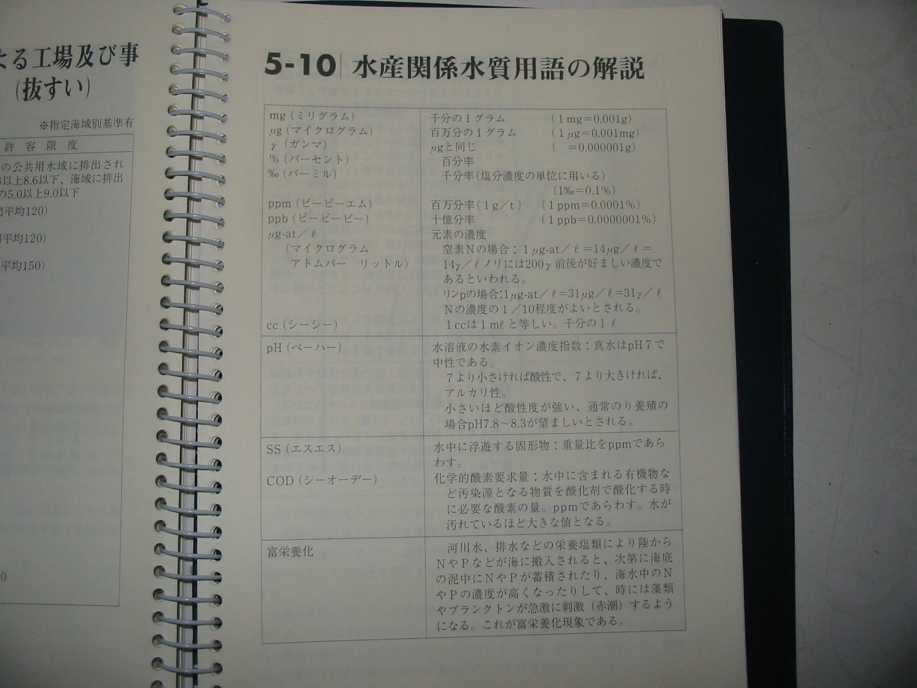 よる工場及び事
(抜すい)
※指定海域別基準有
許容限度
の公共用水域に排出され
以上8.6以下、海域に排出
の5.0以上9.0以下
平均120)
平均120)
平均150)
5-10 水産関係水質用語の解説
mg(ミリグラム) 千分の1グラム (1mg=0.001g)
μg(マイクログラム) 百万分の1グラム (1μg=0.001mg)
γ(ガンマ) μgと同じ ( =0.000001g)
%(パーセント) 百分率
‰(パーミル) 千分率(塩分濃度の単位に用いる)
(1‰=0.1%)
ppm(ピーピーエム) 百万分率(1g/t) (1ppm=0.0001%)
ppb(ピーピービー) 十億分率 (1ppb=0.0000001%)
μg-at/ℓ 元素の濃度
(マイクログラム 窒素Nの場合:1μg-at/ℓ=14μg/ℓ=
アトムパー リットル) 14γ/ℓノリには200γ前後が好ましい濃度で
あるといわれる。
リンpの場合:1μg-at/ℓ=31μg/ℓ=31γ/ℓ
Nの濃度の1/10程度がよいとされる。
cc(シーシー) 1ccは1mℓと等しい。千分の1ℓ
pH(ペーハー) 水溶液の水素イオン濃度指数:真水はpH7で
中性である。
7より小さければ酸性で、7より大きければ、
アルカリ性。
小さいほど酸性度が強い、通常のり養殖の
場合pH7.8~8.3が望ましいとされる。
SS(エスエス) 水中に浮遊する固形物:重量比をppmであら
わす。
COD(シーオーデー) 化学的酸素要求量:水中に含まれる有機物な
ど汚染源となる物質を酸化剤で酸化する時
に必要な酸素の量。ppmであらわす。水が
汚れているほど大きな値となる。
富栄養化 河川水、排水などの栄養塩類により陸から
NやPなどが海に搬入されると、次第に海底
の泥中にNやPが蓄積されたり、海水中のN
やPの濃度が高くなったりして、時には藻類
やプランクトンが急激に刺激(赤潮)するよう
になる。これが富栄養化現象である。